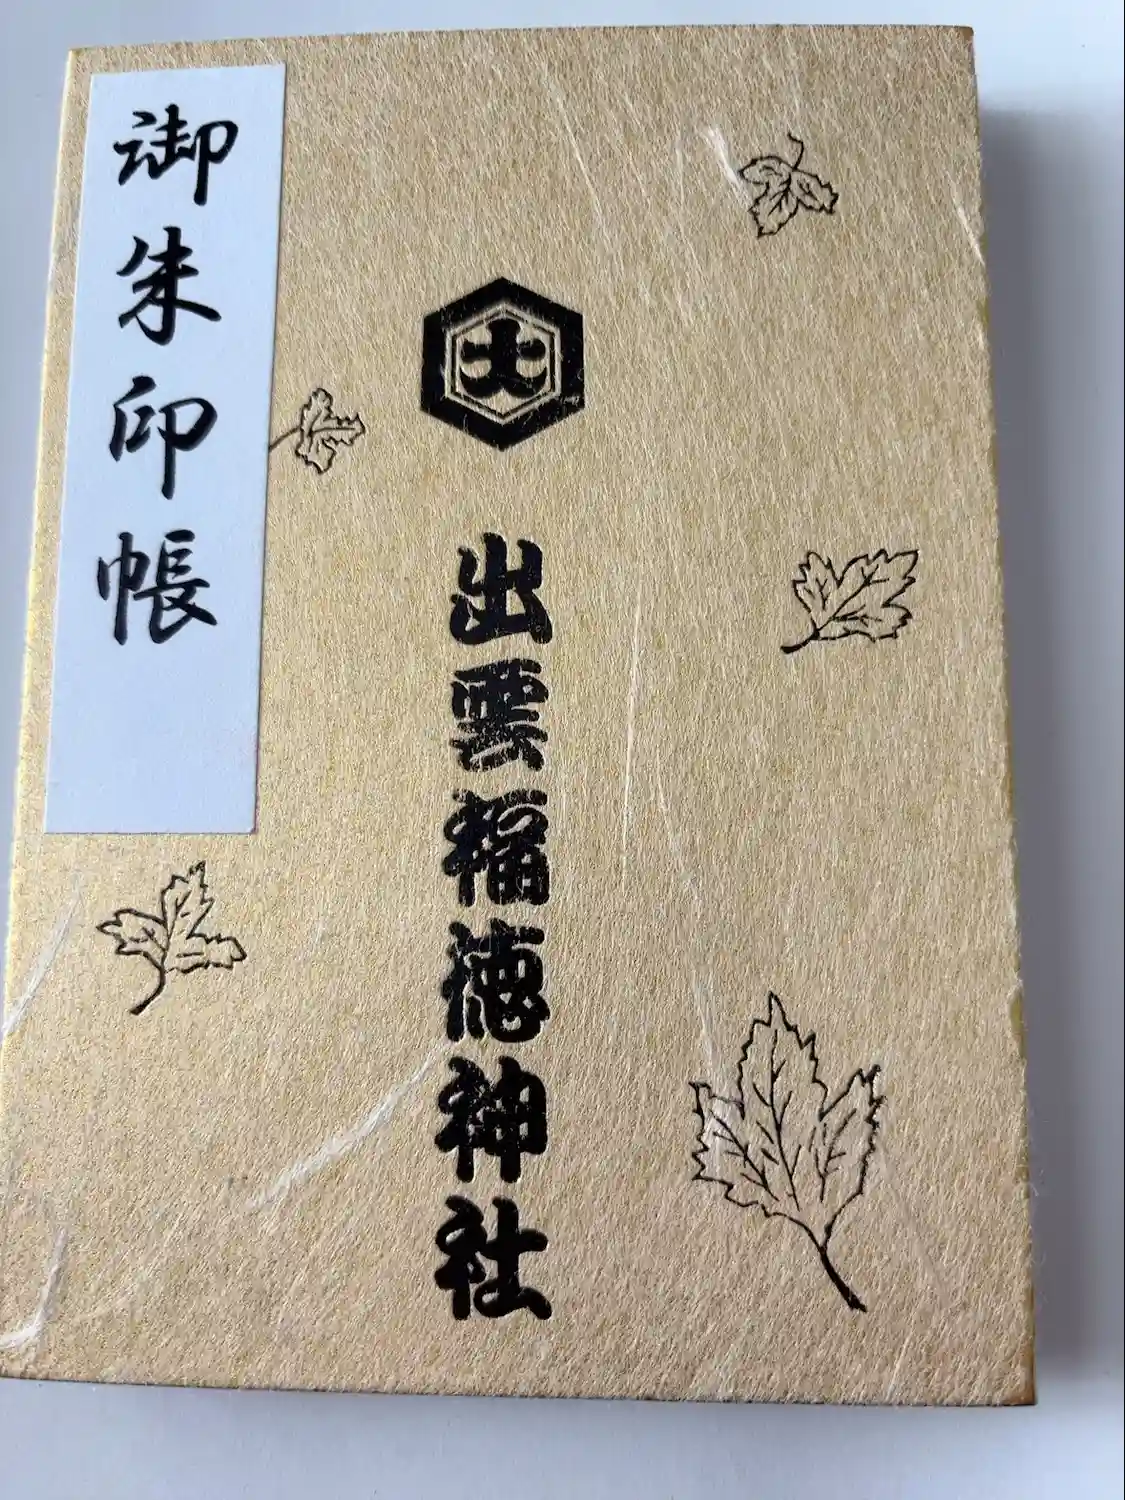 御朱印帳
大
出雲福徳神社